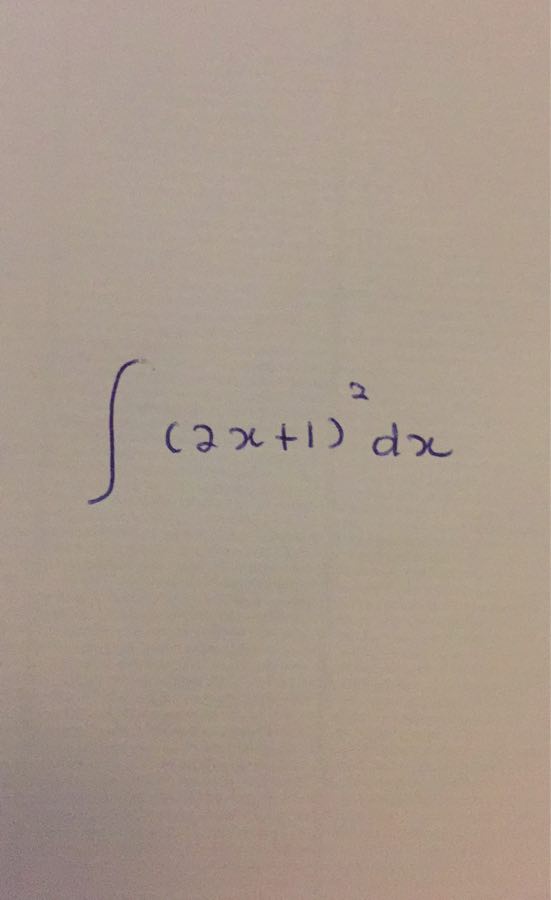 ∫ (2x+1)² dx